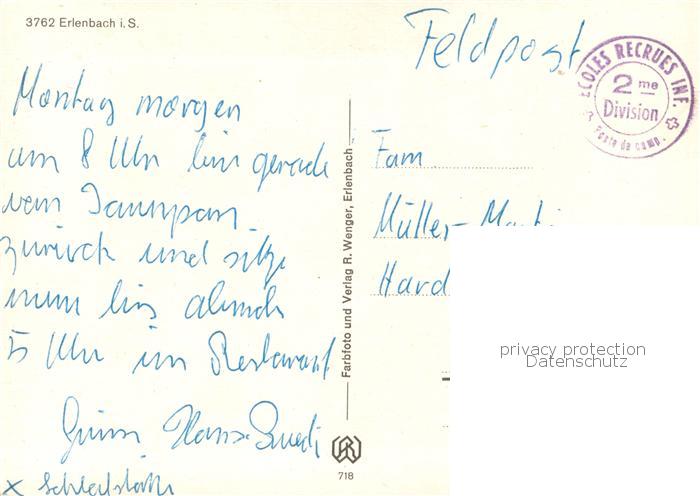 3762 Erlenbach i. S.
Feldpost
ECOLES RECRUES INF.
2 me
Division
Poste de camp.
Montag morgen
um 8 Uhr bin gerade
vom Jaunpass
zurück und sitze
nun bis abends
5 Uhr im Restaurant
Hans-Ruedi
Farbfoto und Verlag R. Wenger, Erlenbach
718
Fam
Müller-
Hard
privacy protection
Datenschutz